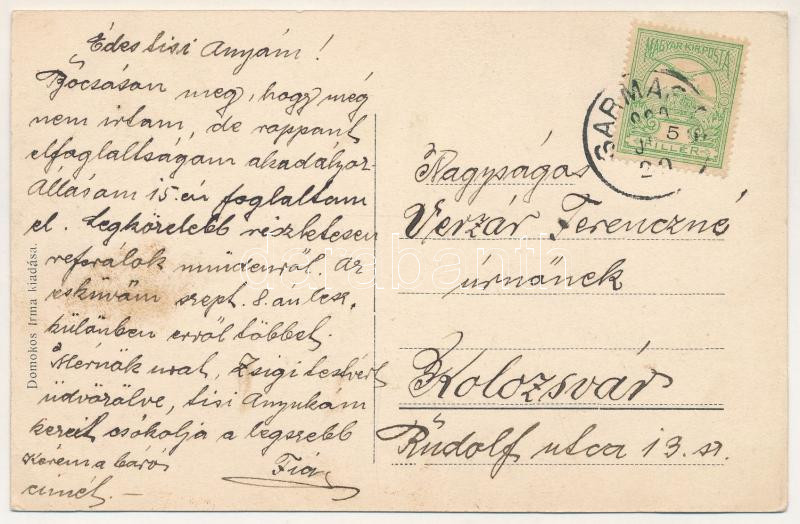 Édes tisi Anyám!
Bocsásson meg, hogy még
nem irtam, de roppant
elfoglaltságom akadályoz.
Állásom 15.én foglaltam
el. Legközelebb részletesen
referálok mindenről. Az
esküvőm szept. 8.án lesz,
különben erről többet.
Mérnök urat, Zsigi testvért
üdvözölve, tisi Anyukám
kezeit csókolja a legszebb
Kérem a báró
Fia
címét. —
Domokos Irma kiadása.
Nagyságos
Verzár Ferenczné
úrnőnek
Kolozsvár
Rudolf utca 13. sz.
MAGYAR KIR. POSTA
5
FILLÉR
SARMÁS
20
darabanth